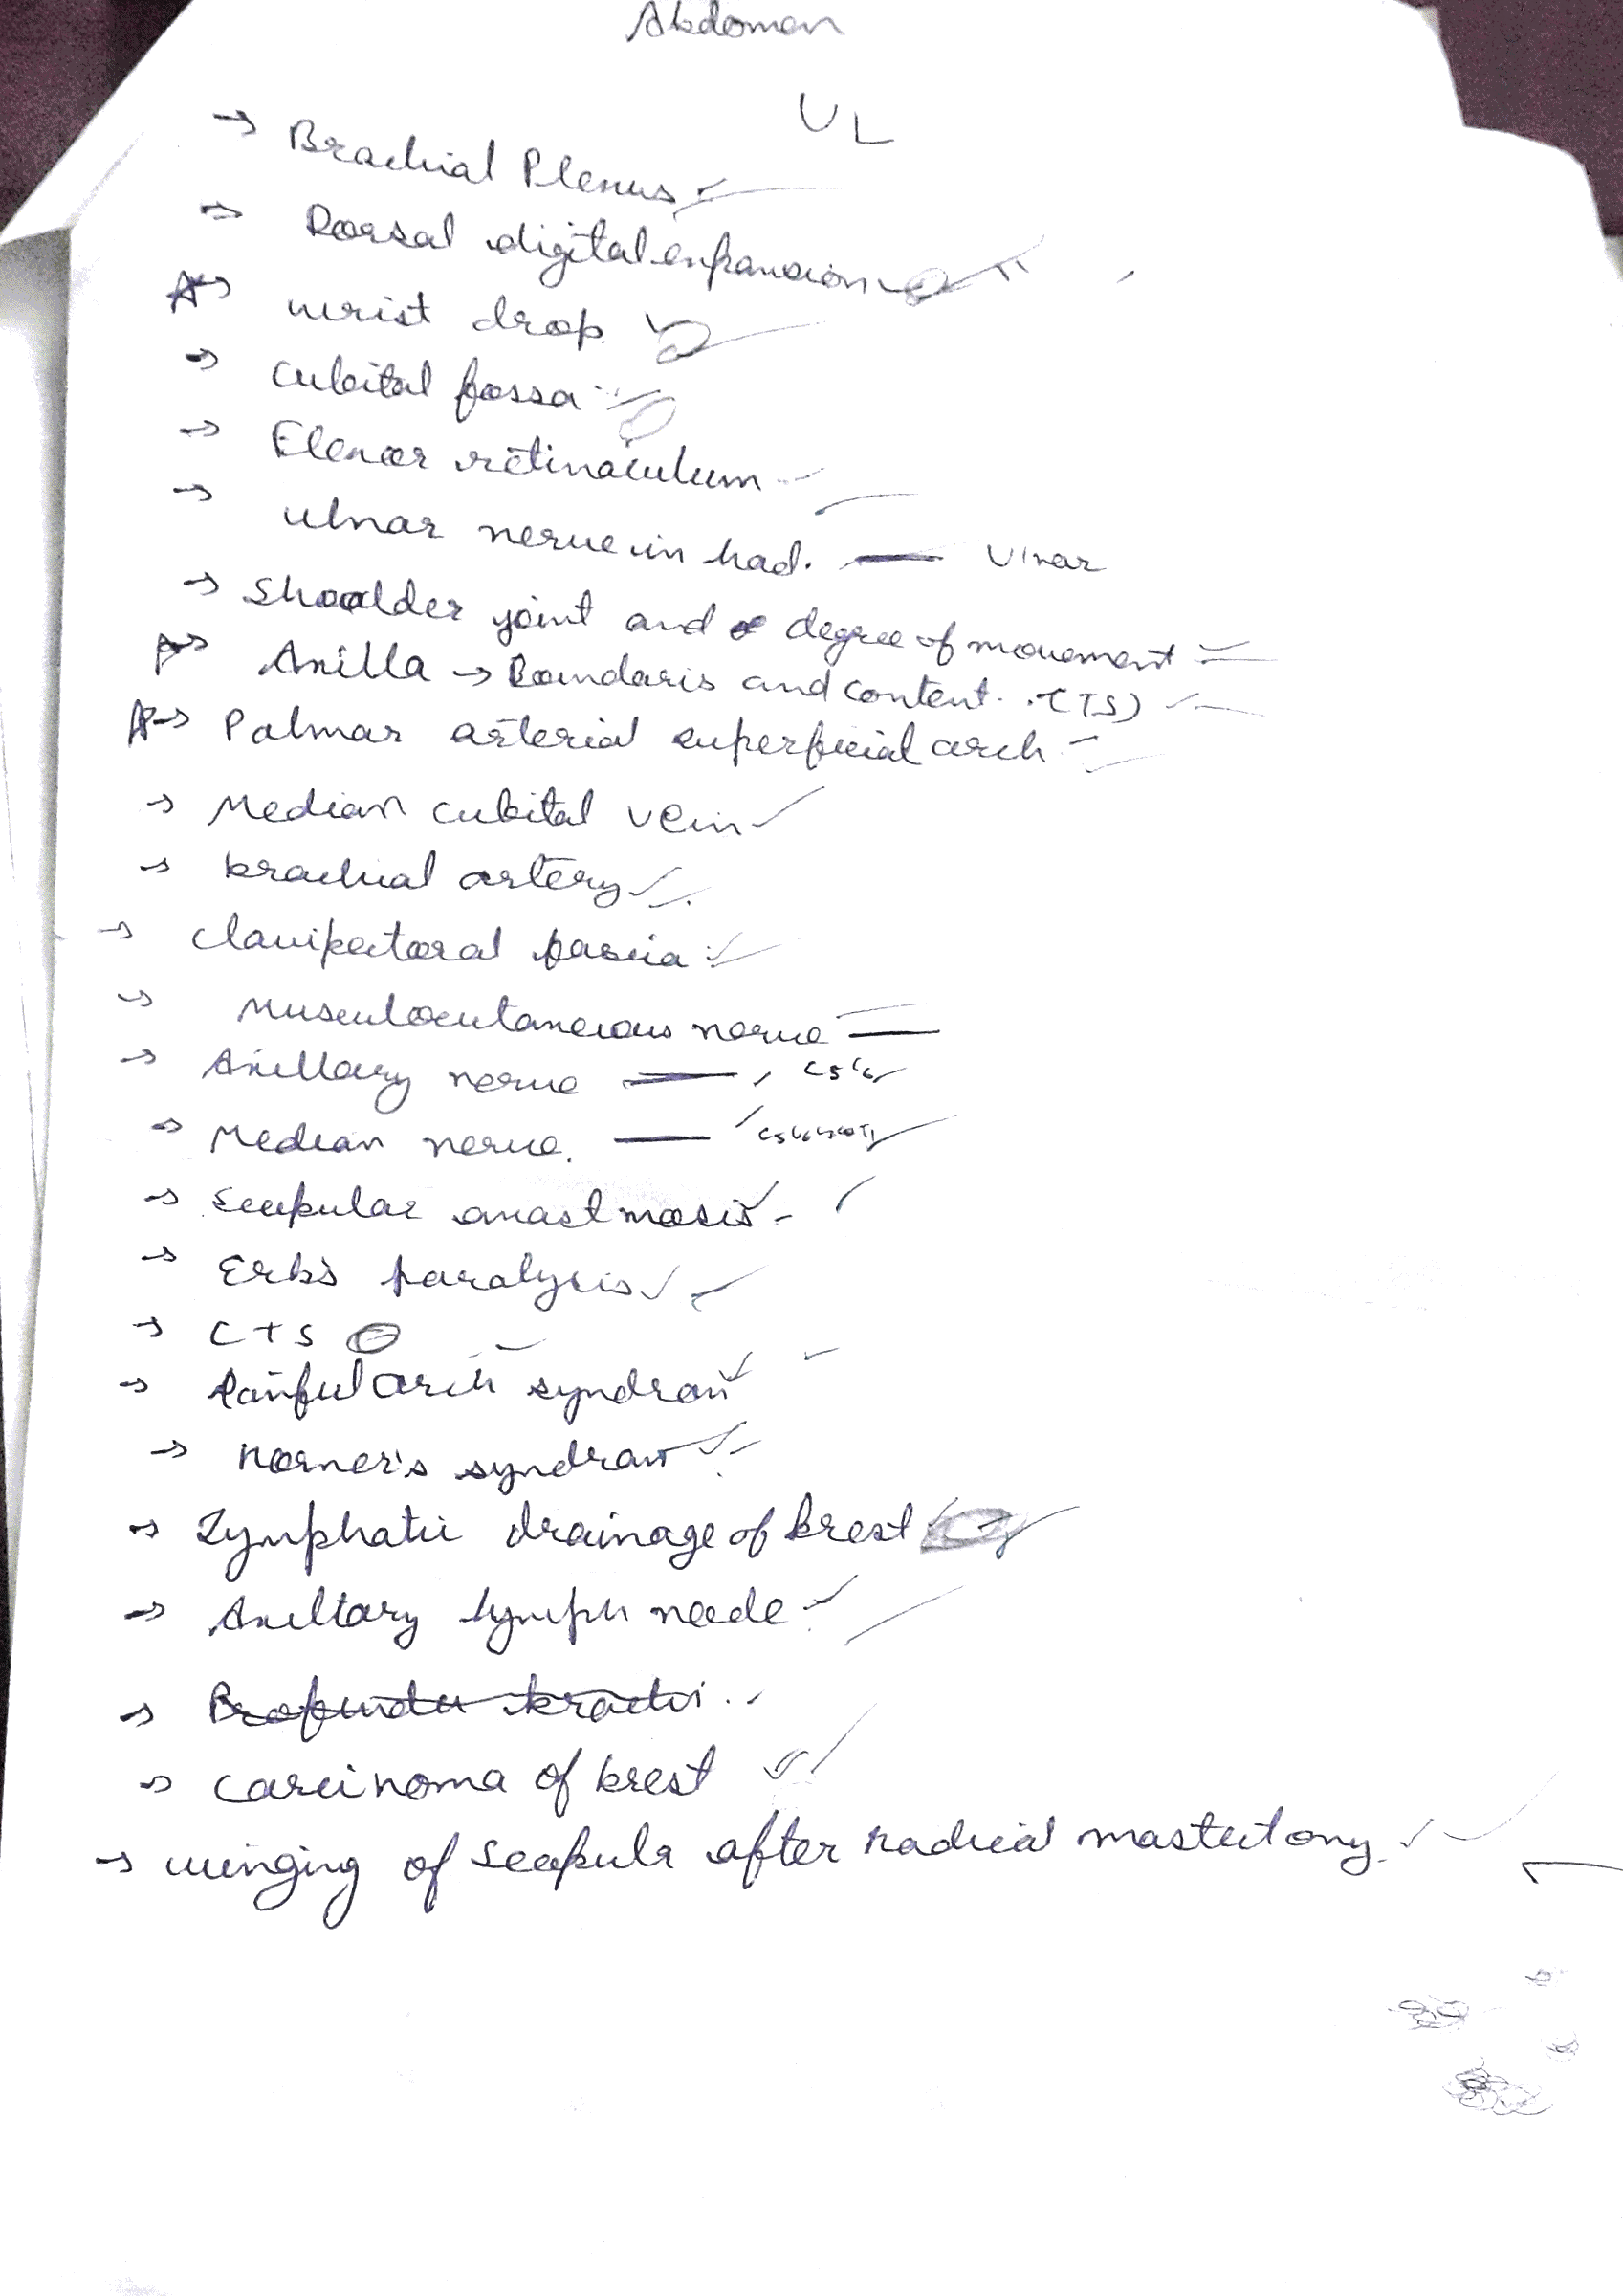 Abdomen
UL
→ Brachial Plexus
→ Dorsal digital expansion
→ wrist drop
→ cubital fossa
→ Flexor retinaculum
→ ulnar nerve in had. — Ulnar
→ Shoolder joint and degree of movement
→ Axilla → Boundaris and content. (TS)
→ Palmar arterial superficial arch
→ Median cubital vein
→ brachial artery
→ clavipectoral fascia
→ Musculocutaneious nerve
→ Axillary nerve — C5 C6
→ Median nerve. —
→ Scapular anastmosis
→ Erb's paralysis
→ CTS
→ Painful arch syndrom
→ Horner's syndrom
→ Lymphatic drainage of brest
→ Axillary lymph node
→ Profunda brachi
→ carcinoma of brest
→ winging of scapula after radical mastectomy